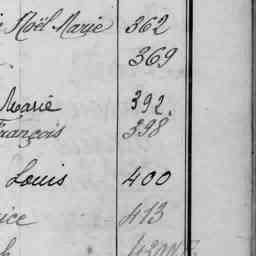 Noël Marie 362
369
Marie 392.
François 398
Louis 400
ice 413